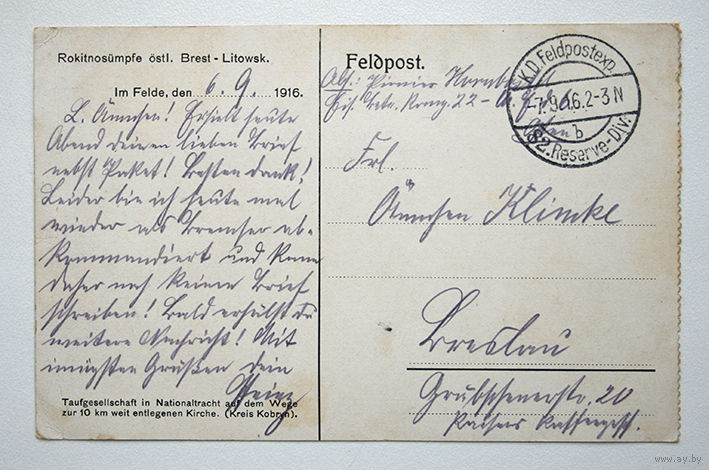 Rokitnosümpfe östl. Brest - Litowsk.
Im Felde, den 6. 9. 1916.
L. Ännchen! Erhielt heute
Abend deinen lieben Brief
nebst Paket! Besten Dank!
Leider bin ich heute mal
wieder als Bremser ab-
kommandiert und kann
daher noch keinen Brief
schreiben! Bald erhälst du
weitere Nachricht! Mit
innigsten Grüßen dein
Heinz
Taufgesellschaft in Nationaltracht auf dem Wege
zur 10 km weit entlegenen Kirche. (Kreis Kobryn).
Feldpost.
Abs: Pionier
Eis. Betr. Komp. 22
K.D. Feldpostexp.
-7.9.16.2-3N
b
82. Reserve-Div.
Frl.
Ännchen Klimke
Breslau
Grübschenerstr. 20
Kaisers
www.ay.by